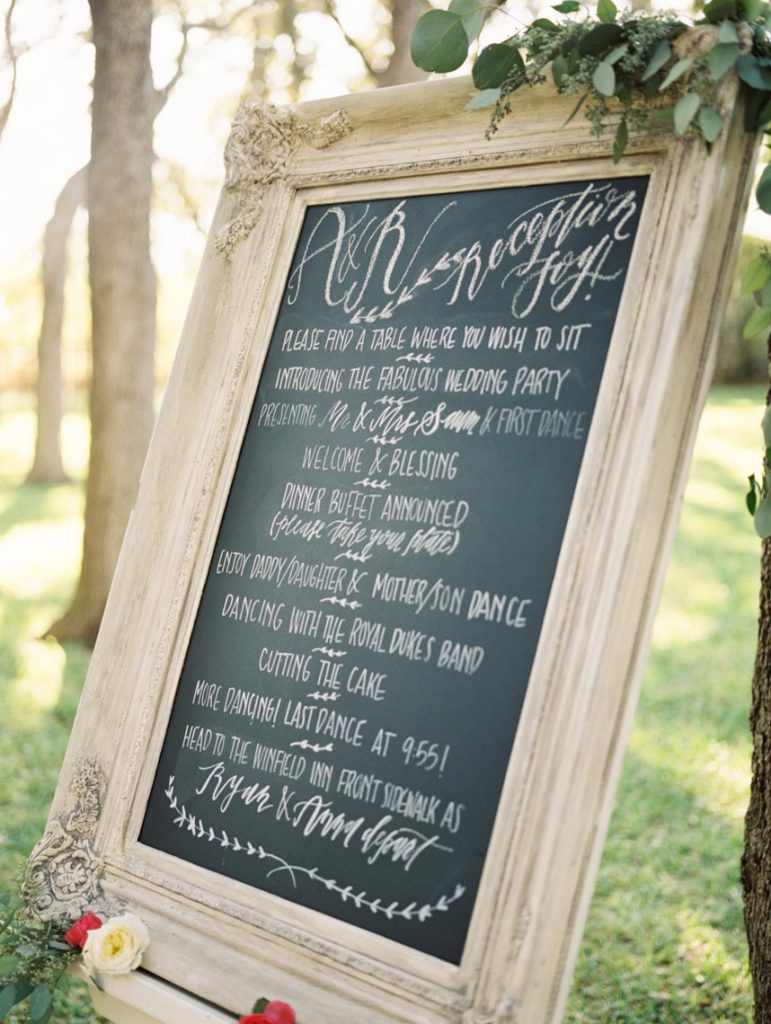 A & R Reception Joy!
PLEASE FIND A TABLE WHERE YOU WISH TO SIT
INTRODUCING THE FABULOUS WEDDING PARTY
PRESENTING Mr & Mrs Saum & FIRST DANCE
WELCOME & BLESSING
DINNER BUFFET ANNOUNCED
(please take your plate)
ENJOY DADDY/DAUGHTER & MOTHER/SON DANCE
DANCING WITH THE ROYAL DUKES BAND
CUTTING THE CAKE
MORE DANCING! LAST DANCE AT 9:55!
HEAD TO THE WINFIELD INN FRONT SIDEWALK AS
Ryan & Anna depart